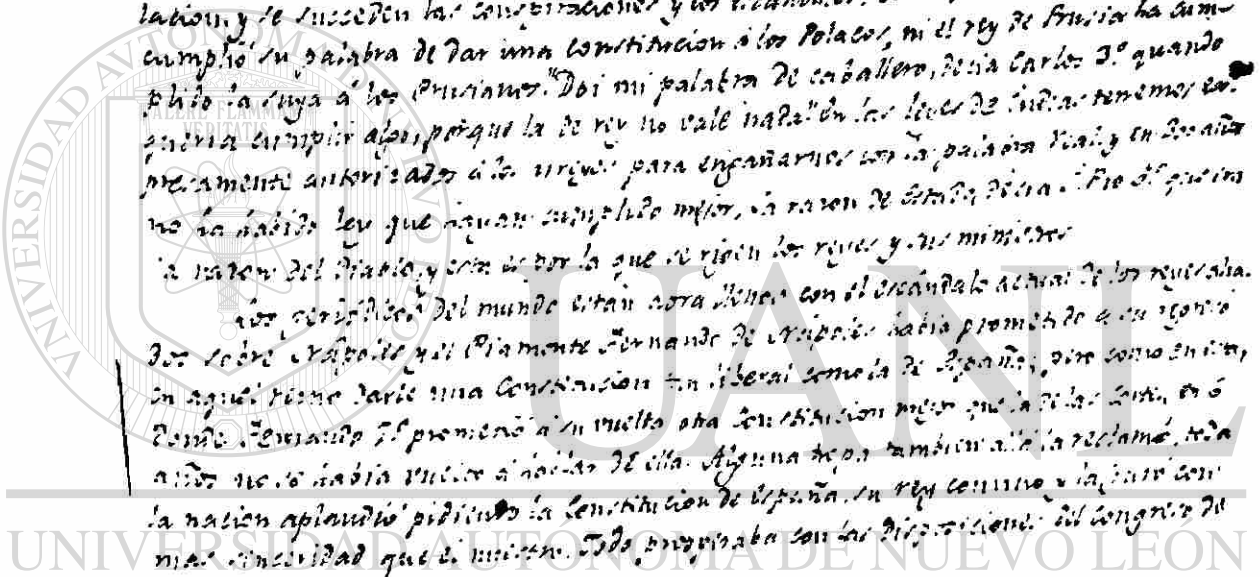 lacion, y se suceden las conspiraciones y los
cumplió su palabra de dar una constitucion á los Polacos, ni el rey de Prusia ha cum-
plido la suya á los Prusianos. "Doi mi palabra de caballero, decia Carlos 3º quando
queria cumplir algo, porque la de rey no vale nada" En las leyes de Indias tenemos ex-
presamente autorizados á los vireyes para engañarnos con la palabra Real, y en 300 años
no ha habido ley que hayan cumplido mejor. La razon de estado, decia S. Pio 5º que era
la razon del Diablo, y esta es por la que se rijen los reyes y sus ministros
Los periódicos del mundo estan aora llenos con el escándalo actual de los reyes alia-
dos sobre Nápoles y el Piamonte Fernando de Nápoles habia prometido á su
en aquel reino darle una Constitucion tan liberal como la de España; pero como en esta,
donde Fernando 7º prometió á su vuelta otra Constitucion mejor que la de las Cortes, en 6
años no se habia vuelto á hablar de ella. Alguna tropa tambien allá la reclamó, toda
la nacion aplaudió pidiendo la Constitucion de España, su rey convino y la juró con
mas sinceridad que el nuestro. Todo prosperaba con las disposiciones del Congreso de
UNIVERSIDAD AUTÓNOMA
ALERE FLAMMAM
VERITATIS
UANL
UNIVERSIDAD AUTÓNOMA DE NUEVO LEÓN